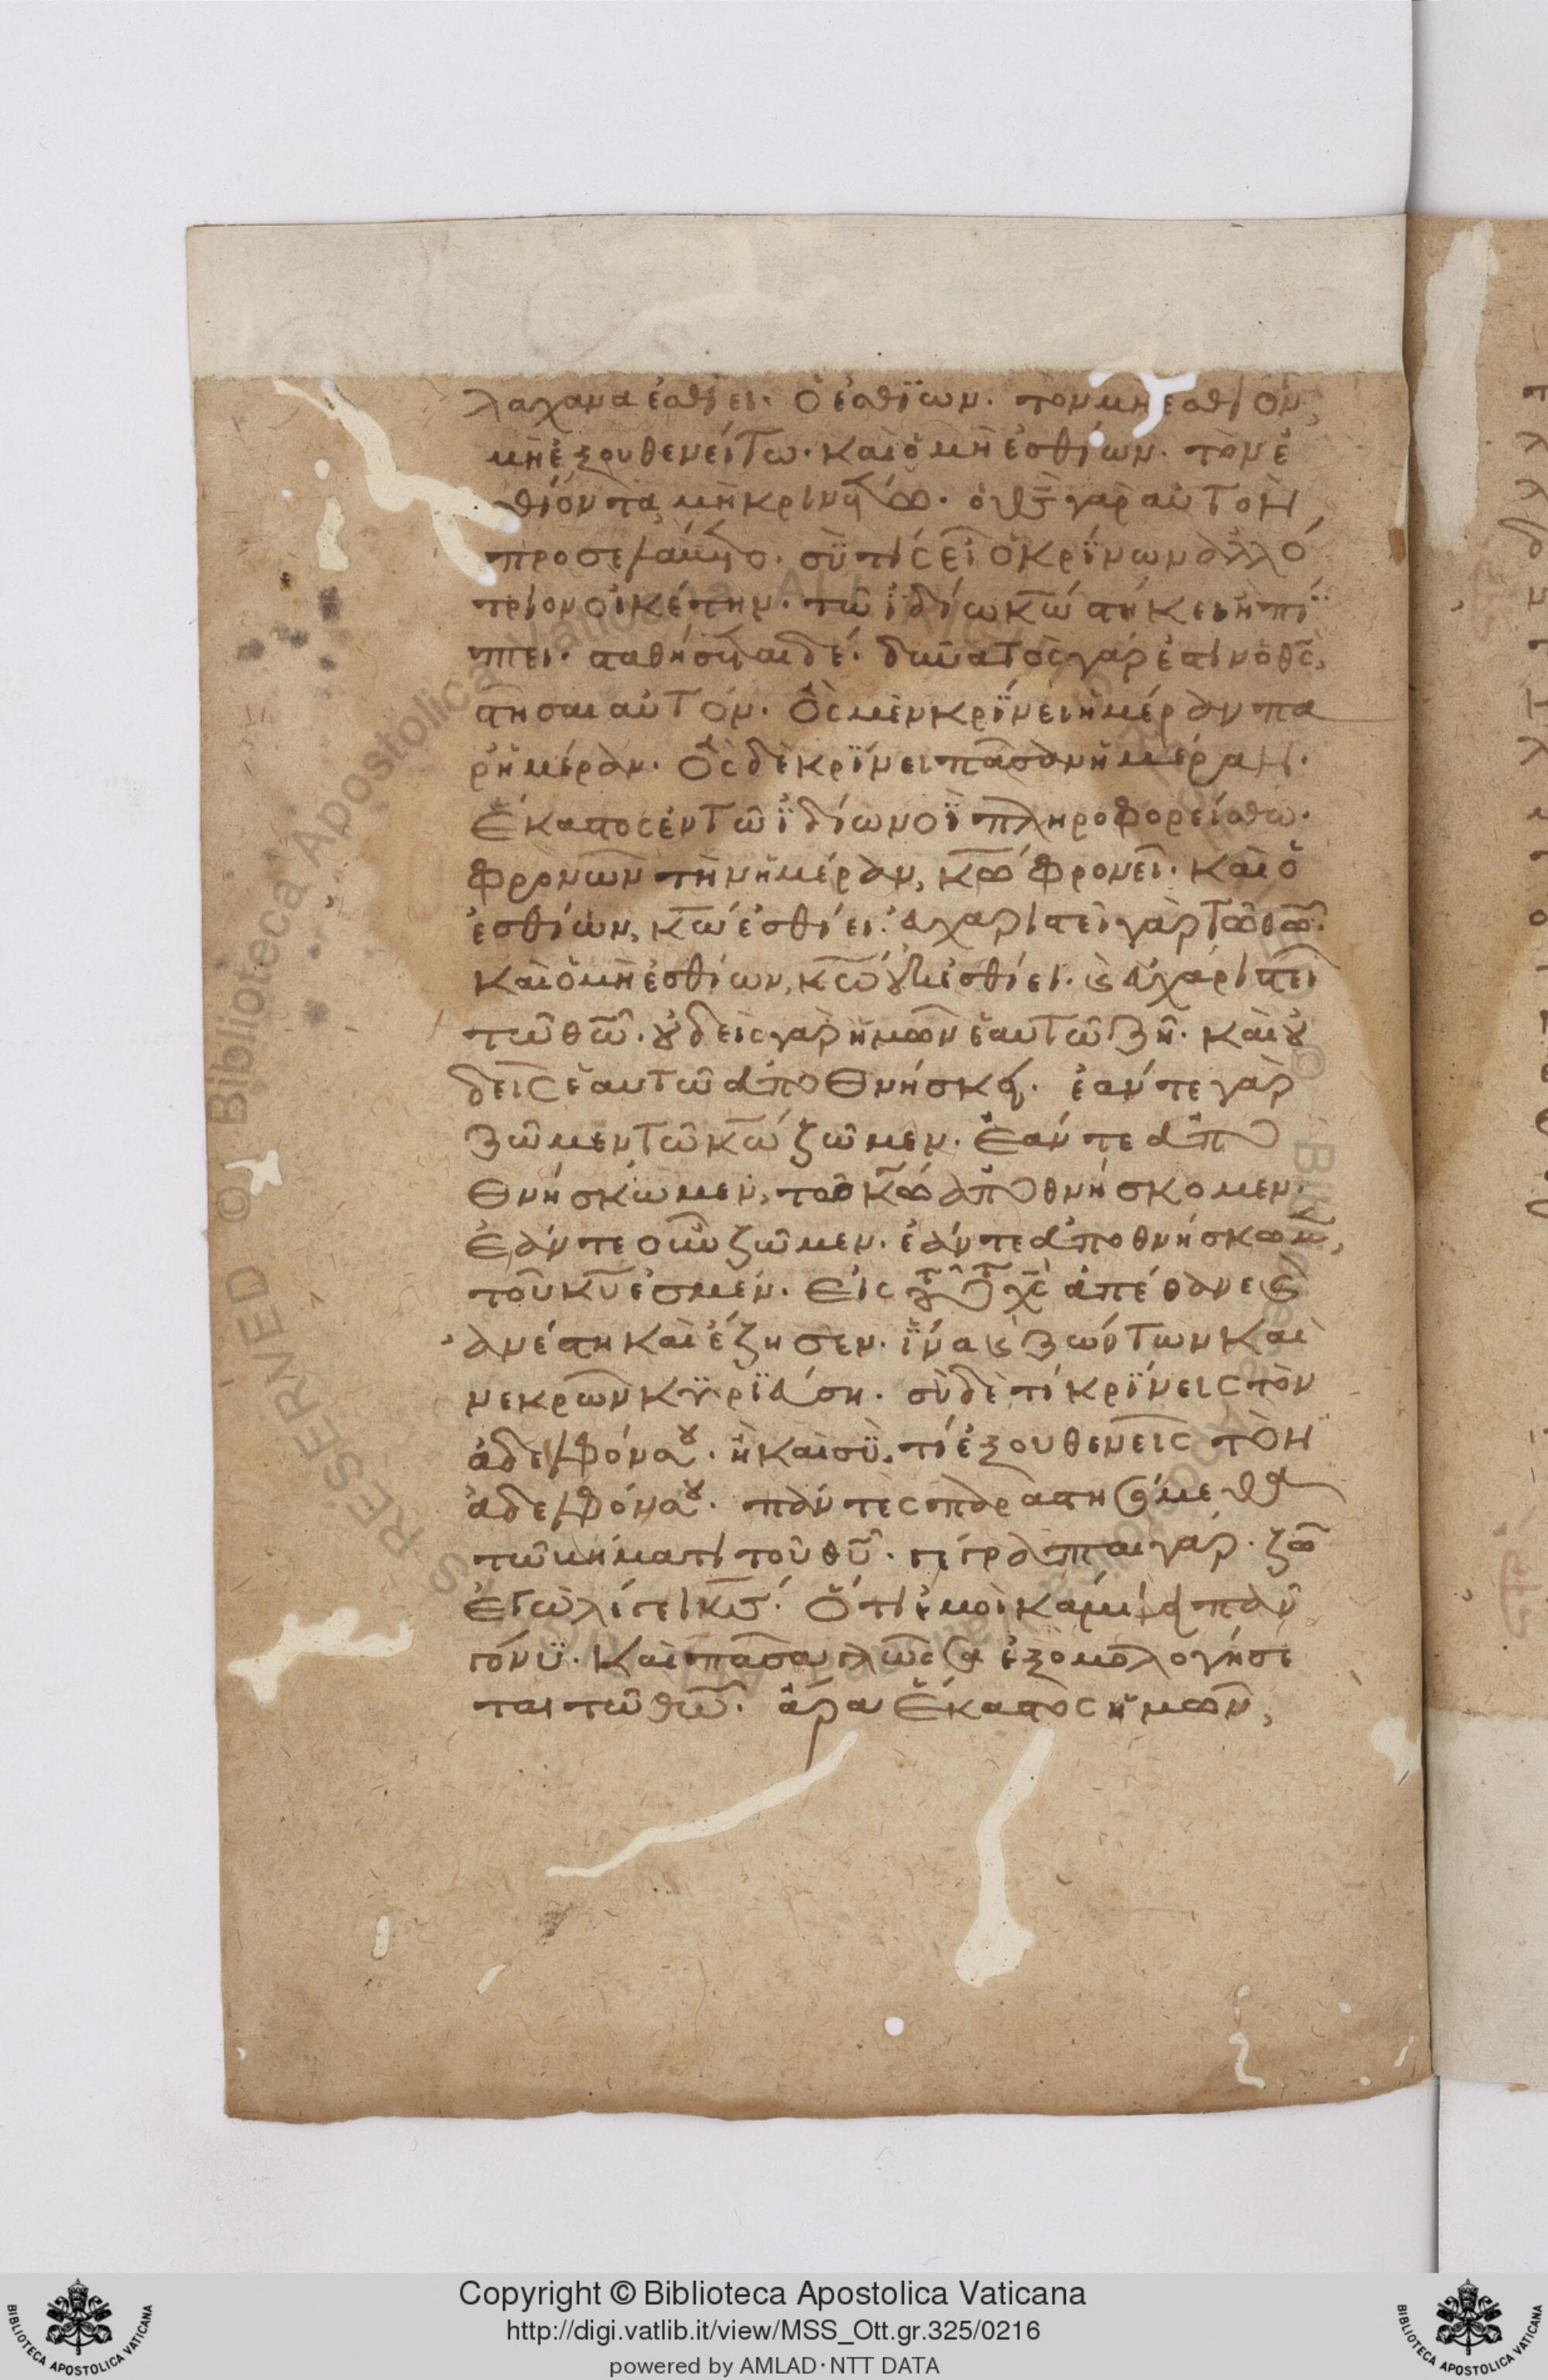 λαχανα ἐσθίει· ὁ ἐσθΐων· τὸν μὴ ἐσθίον
μὴ ἐξουθενείτω· καὶ ὁ μὴ ἐσθίων· τὸν ἐ
θίοντα μὴ κρινέτω· ὁ θς γὰρ αὐτὸν
προσελάβετο· σὺ τίς εἶ ὁ κρΐνων ἀλλό
τριον οἰκέτην· τῶ ϊδίω κω στήκει ἢ πί
πτει· σταθήσεται δέ· δυνατὸς γάρ ἐστιν ὁ θς,
στῆσαι αὐτόν· Ὃς μὲν κρΐνει ἡμέραν πα
ρ ἡμέραν· Ὃς δὲ κρΐνει πᾶσαν ἡμέραν·
Ἕκαστος ἐν τῶ ϊδίω νοῒ πληροφορείσθω·
φρονῶν τὴν ἡμέραν, κω φρονεῖ· καὶ ὁ
ἐσθίων, κω ἐσθίει· εὐχαριστεῖ γὰρ τῶ θω·
καὶ ὁ μὴ ἐσθίων, κω οὐκ ἐσθίει· καὶ εὐχαριστεῖ
τῶ θω· οὐδεὶς γὰρ ἡμῶν ἑαυτῶ ζῆ· καὶ οὐ
δεὶς ἑαυτῶ ἀποθνήσκει· ἐάν τε γὰρ
ζῶμεν τῶ κω ζῶμεν· Ἐάν τε ἀπο
θνήσκωμεν, τῶ κω ἀποθνήσκομεν·
Ἐάν τε οὖν ζῶμεν· ἐάν τε ἀποθνήσκωμεν,
τοῦ κυ ἐσμέν· Εἰς τοῦτο χς ἀπέθανε καὶ
ἀνέστη καὶ ἔζησεν· ἵνα καὶ ζώντων καὶ
νεκρῶν κυρϊεύση· σὺ δὲ τί κρΐνεις τὸν
ἀδελφόν σου· ἢ καὶ σὺ, τί ἐξουθενεῖς τὸν
ἀδελφόν σου· πάντες παραστησόμεθα
τῶ βήματι τοῦ θυ· γέγραπται γάρ· ζῶ
ἐγὼ λέγει κς· Ὅτι ἐμοὶ κάμψει πᾶν
γόνυ· Καὶ πᾶσα γλῶσσα ἐξομολογήσε
ται τῶ θω· ἄρα Ἕκαστος ἡμῶν,
Copyright © Biblioteca Apostolica Vaticana
http://digi.vatlib.it/view/MSS_Ott.gr.325/0216
powered by AMLAD·NTT DATA